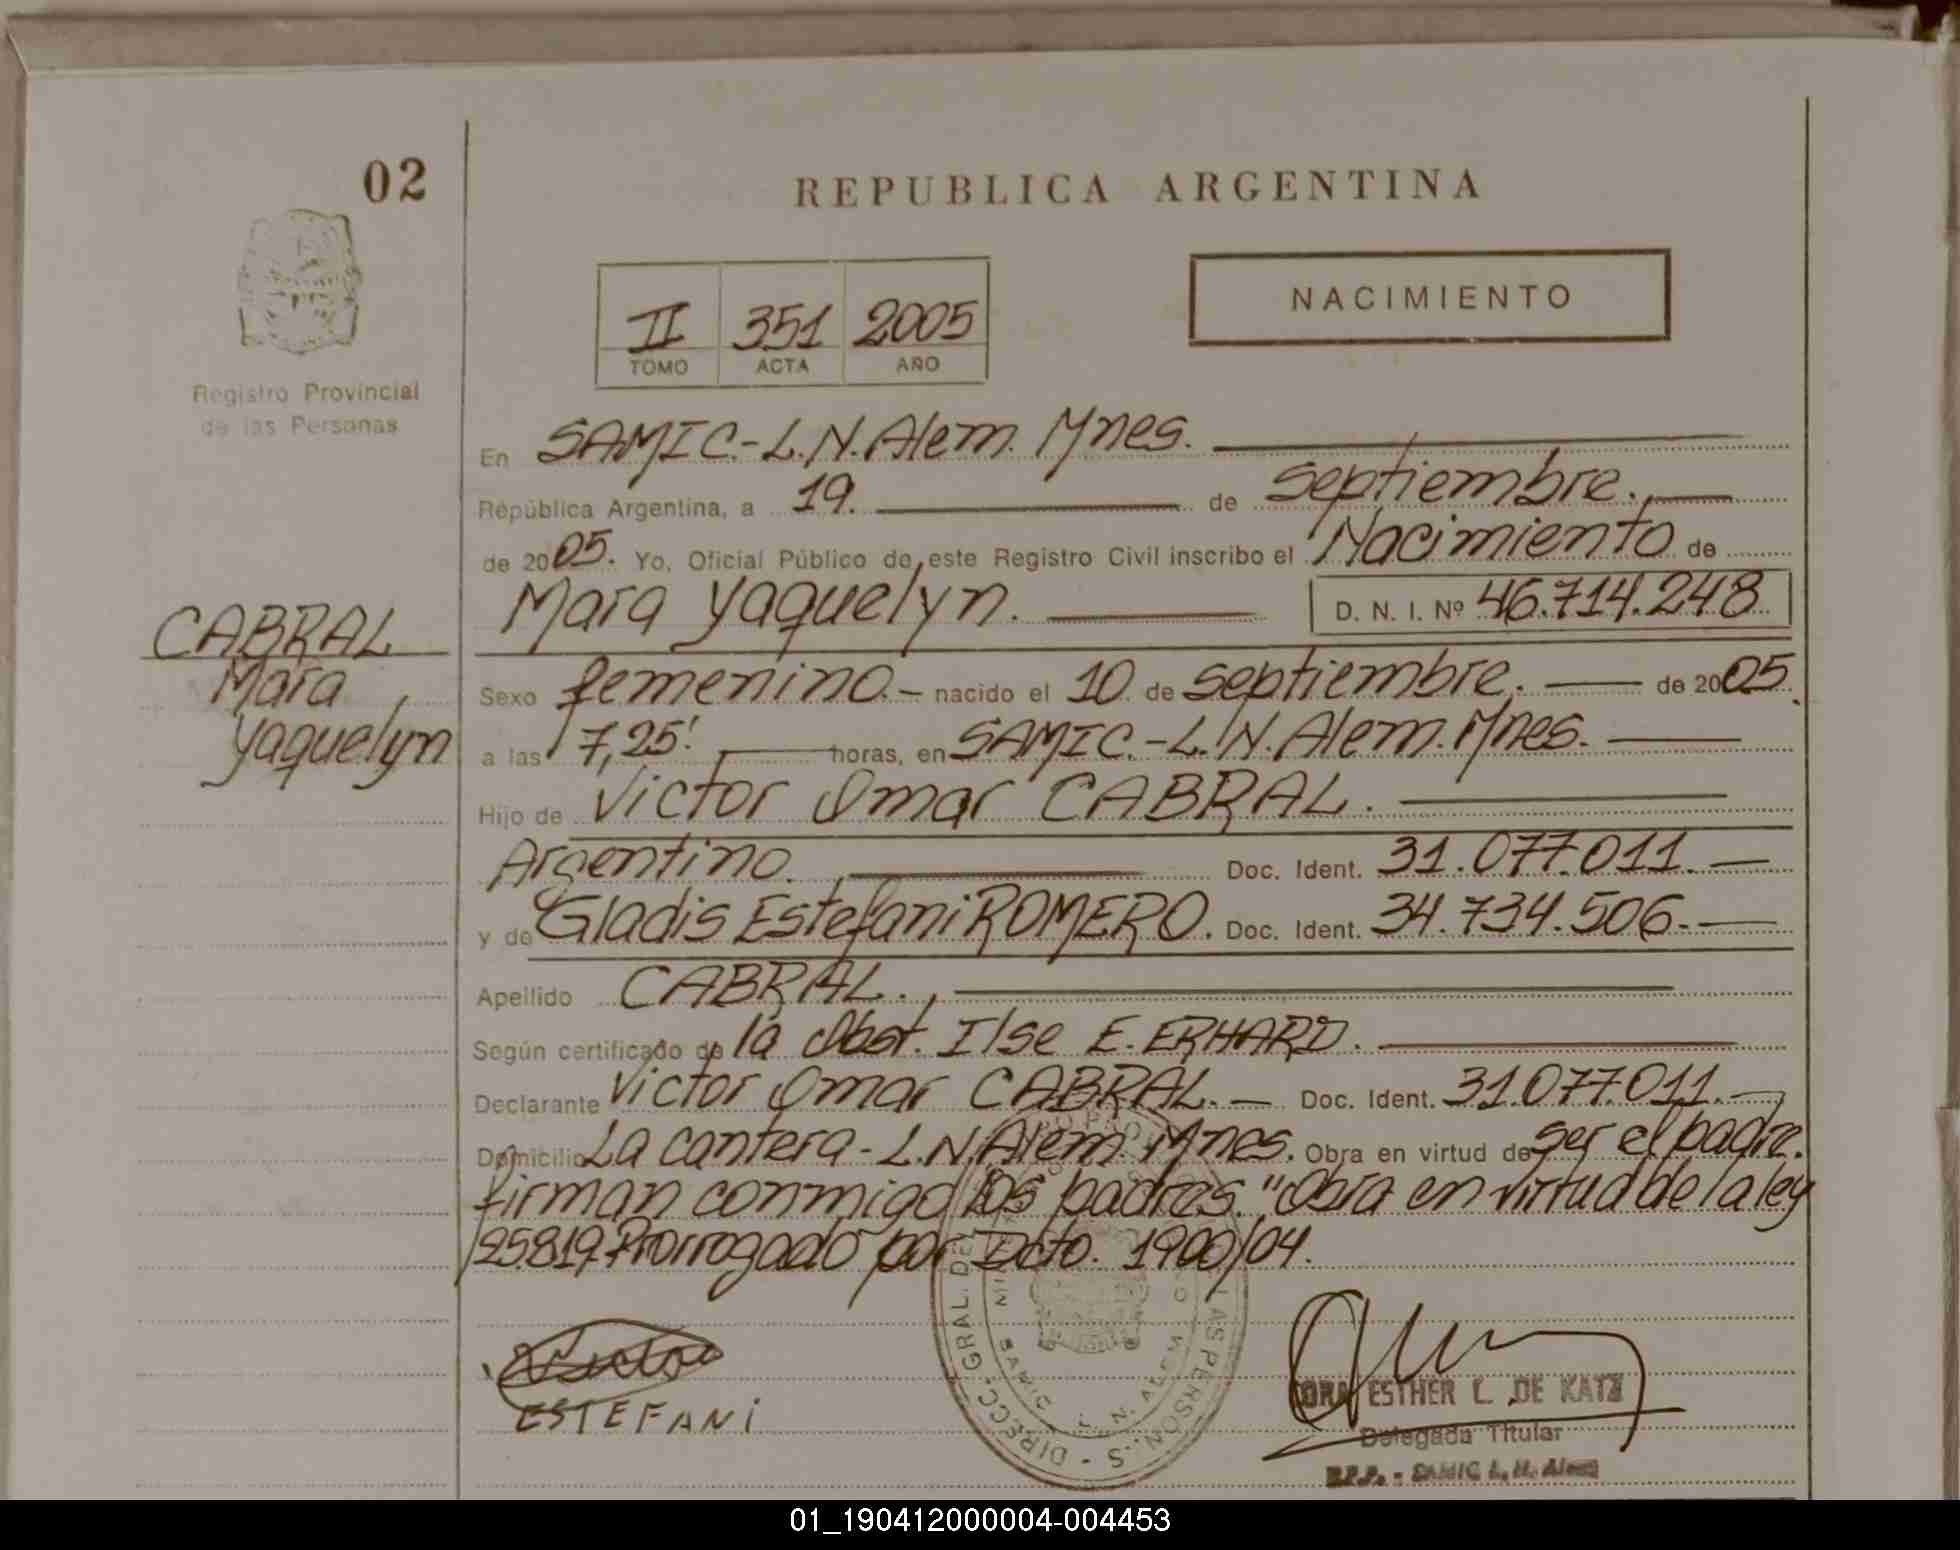 02
REPUBLICA ARGENTINA
II 351 2005
TOMO ACTA AÑO
NACIMIENTO
Registro Provincial
de las Personas
En SAMIC.-L.N.Alem. Mnes.
República Argentina, a 19. de septiembre.,
de 2005. Yo, Oficial Público de este Registro Civil inscribo el Nacimiento de
Mara Yaquelyn. D. N. I. Nº 46.714.248
CABRAL
Mara
Yaquelyn
Sexo femenino.- nacido el 10. de septiembre. de 2005.
a las 7,25' horas, en SAMIC.-L.N.Alem.Mnes.
Hijo de Victor Omar CABRAL.
Argentino. Doc. Ident. 31.077.011.
y de Gladis Estefani ROMERO. Doc. Ident. 34.734.506.-
Apellido CABRAL.,
Según certificado de la Obst. Ilse E. ERHARD.
Declarante Victor Omar CABRAL.- Doc. Ident. 31.077.011.-
Domicilio La cantera-L.N.Alem.Mnes. Obra en virtud de ser el padre.
firman conmigo los padres. "Obra en virtud de la ley
25.819,Prorrogado por Dcto. 1900/04.
ESTEFANI
DIRECC. GRAL. DE LAS PERSONAS
SAMIC L. N. ALEM
ESTHER L. DE KATZ
Delegada Titular
R.P.P. - SAMIC L. N. Alem
01_190412000004-004453